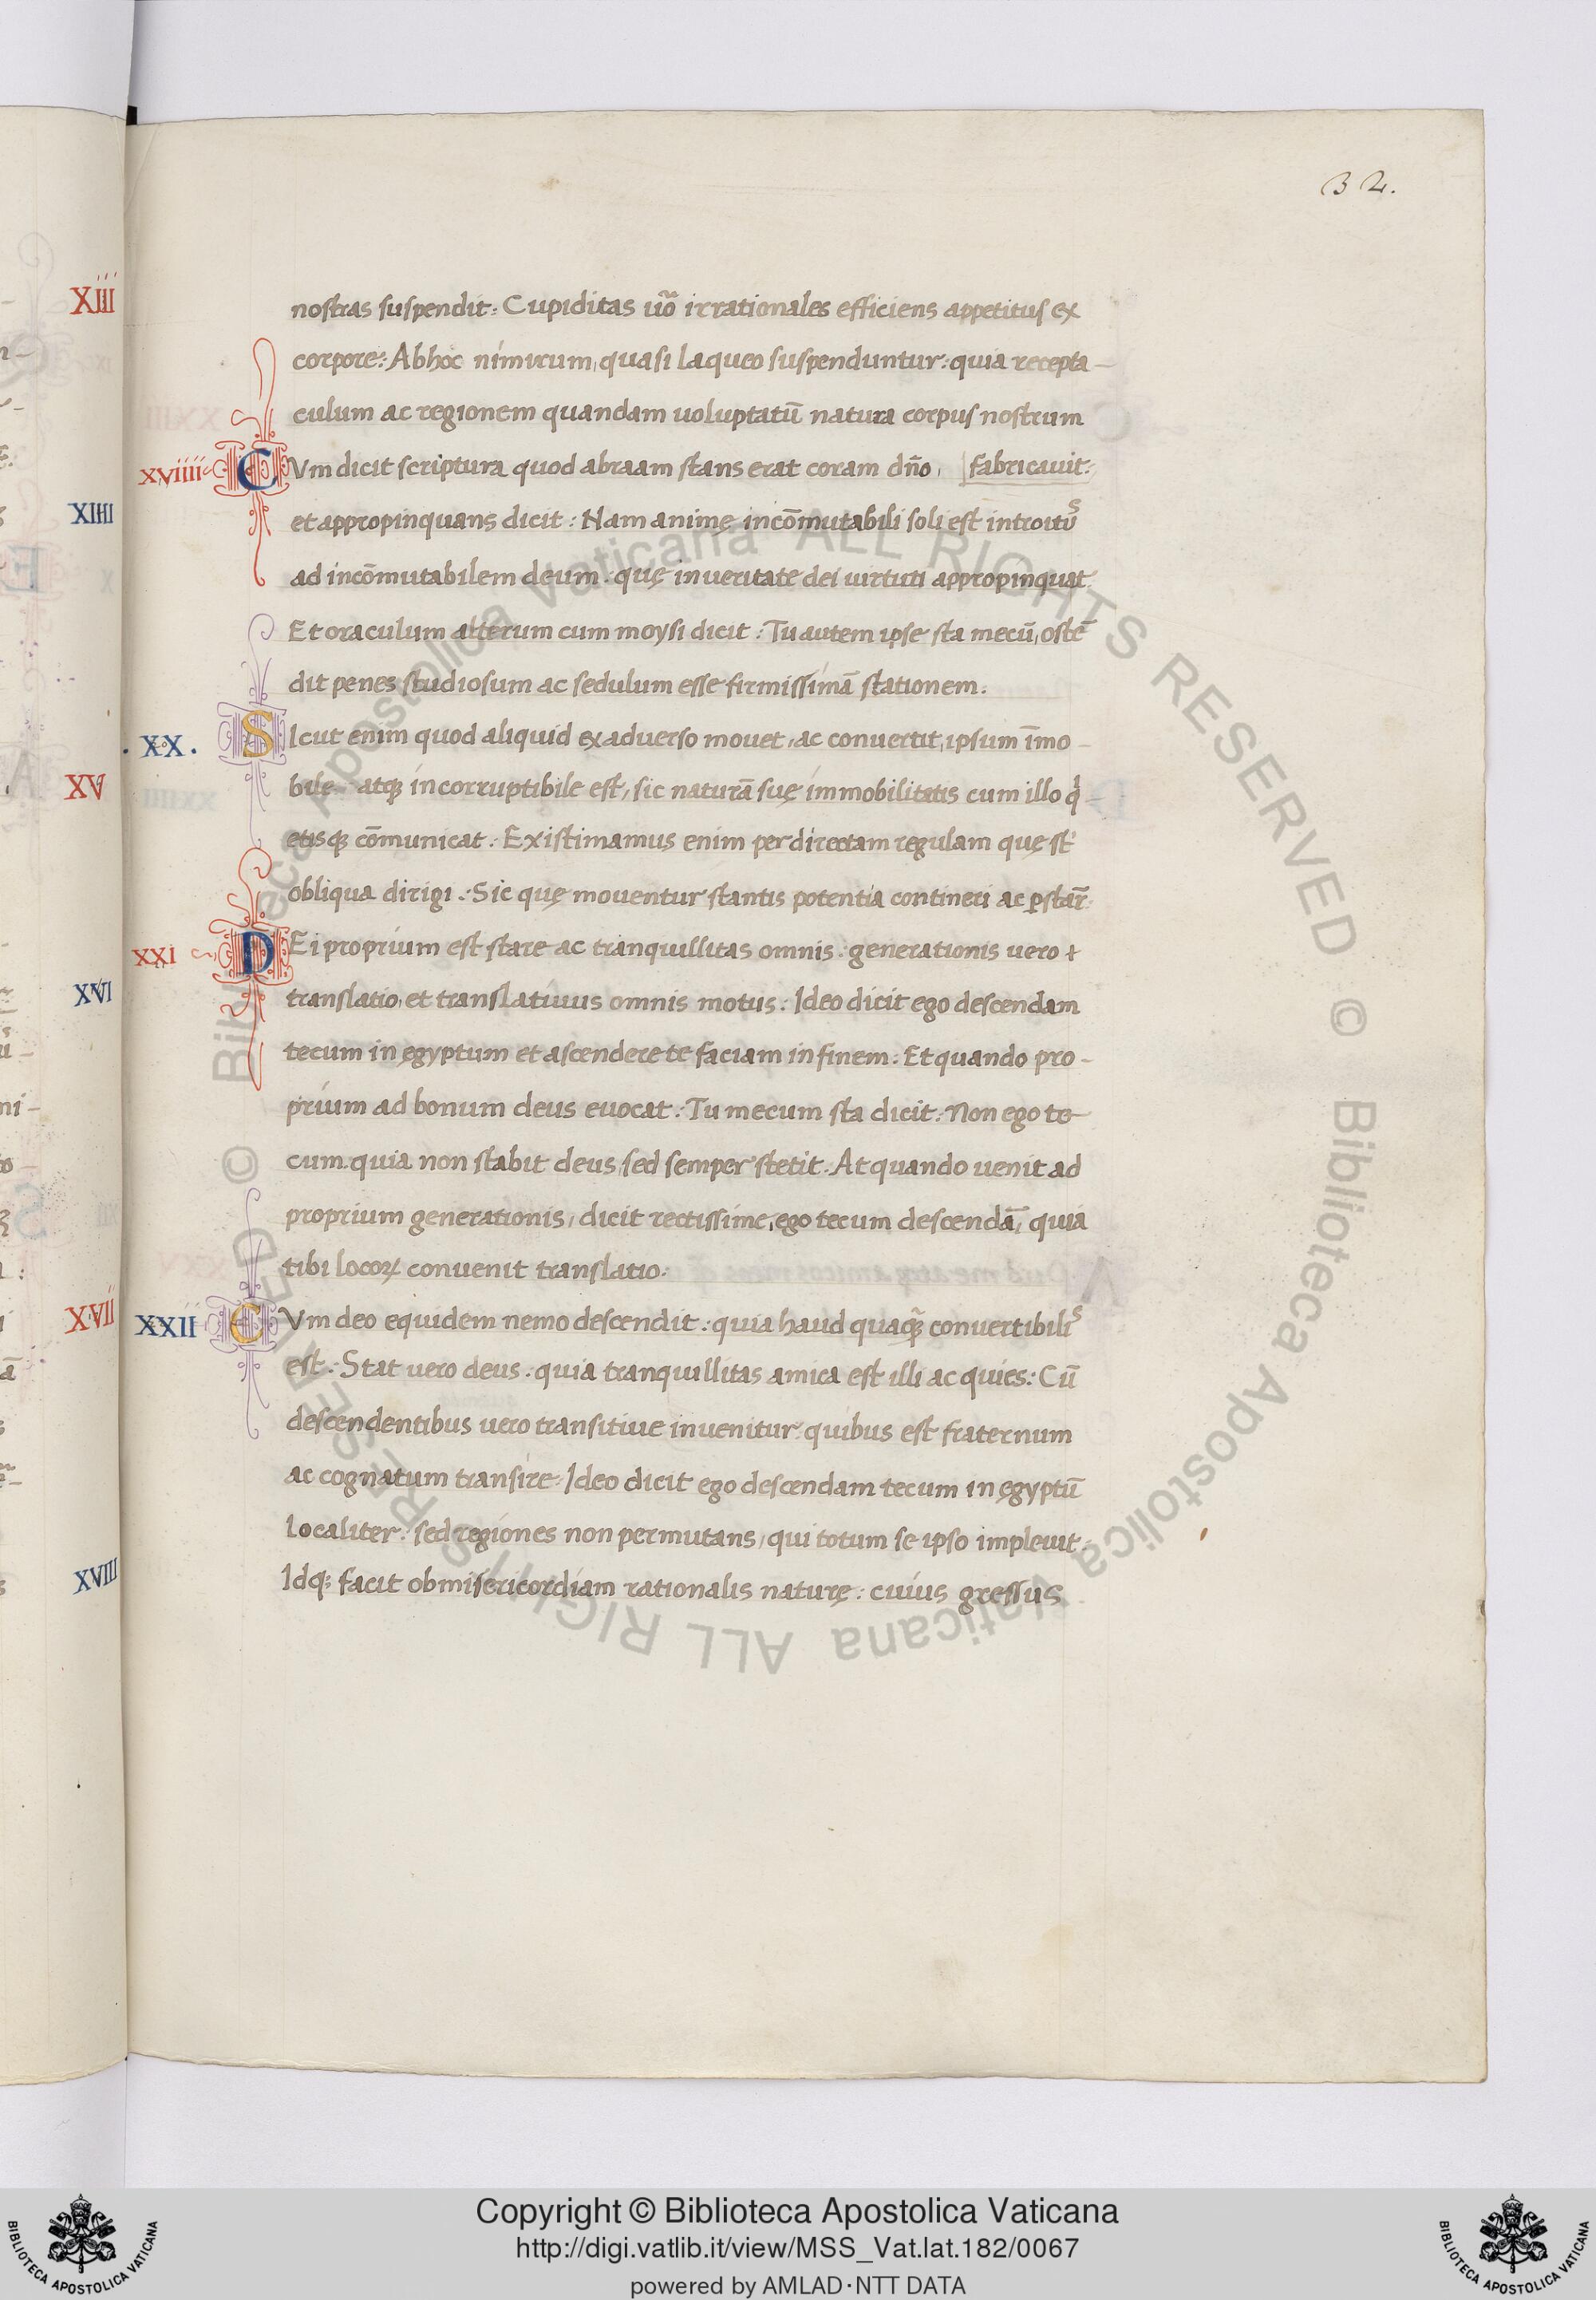 32.
nostras suspendit: Cupiditas uo᷈ irrationales efficiens appetitus ex
corpore: Ab hoc nimirum, quasi laqueo suspenduntur: quia recepta–
culum ac regionem quandam uoluptatū natura corpus nostrum
XVIIII CVm dicit scriptura quod abraam stans erat coram dn̄o, fabricauit:
et appropinquans dicit: Nam animę incōmutabili soli est introitꝰ
ad incōmutabilem deum. quę in ueritate dei uirtuti appropinquat.
Et oraculum alterum cum moysi dicit: Tu autem ipse sta mecū, ostē
dit penes studiosum ac sedulum esse firmissimā stationem.
.XX. SIcut enim quod aliquid ex aduerso mouet, ac conuertit, ipsum īmo–
bile atq; incorruptibile est, sic naturā suę immobilitatis cum illo q̇–
etisq; cōmunicat: Existimamus enim per directam regulam quę st̄
obliqua dirigi: Sic quę mouentur stantis potentia contineri ac ꝑstar̄.
XXI DEi proprium est stare ac tranquillitas omnis: generationis uero +
translatio, et translatiuus omnis motus: Ideo dicit ego descendam
tecum in ęgyptum et ascendere te faciam in finem: Et quando pro–
prium ad bonum deus euocat: Tu mecum sta dicit: Non ego te–
cum. quia non stabit deus, sed semper stetit. At quando uenit ad
proprium generationis, dicit rectissime, ego tecum descendā, quia
tibi locoꝝ conuenit translatio:
XXII CVm deo equidem nemo descendit: quia haud quaq̄; conuertibilꝰ
est: Stat uero deus: quia tranquillitas amica est illi ac quies: Cū
descendentibus uero transitiue inuenitur. quibus est fraternum
ac cognatum transire: Ideo dicit ego descendam tecum in ęgyptū
localiter: sed regiones non permutans, qui totum se ipso impleuit:
Idq; facit ob misericordiam rationalis naturę: cuius gressus
XIII
XIIII
XV
XVI
XVII
XVIII
© Biblioteca Apostolica Vaticana ALL RIGHTS RESERVED © Biblioteca Apostolica Vaticana ALL RIGHTS RESERVED
Copyright © Biblioteca Apostolica Vaticana
http://digi.vatlib.it/view/MSS_Vat.lat.182/0067
powered by AMLAD·NTT DATA
BIBLIOTECA APOSTOLICA VATICANA
BIBLIOTECA APOSTOLICA VATICANA